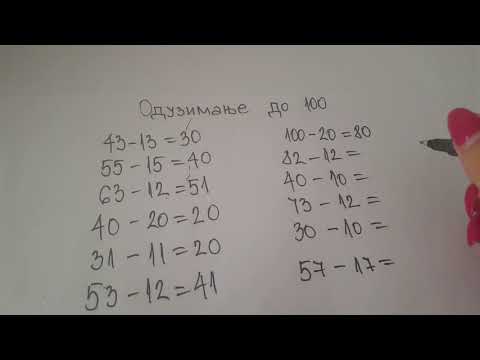 Одузимање до 100
43-13=30
55-15=40
63-12=51
40-20=20
31-11=20
53-12=41
100-20=80
82-12=
40-10=
73-12=
30-10=
57-17=